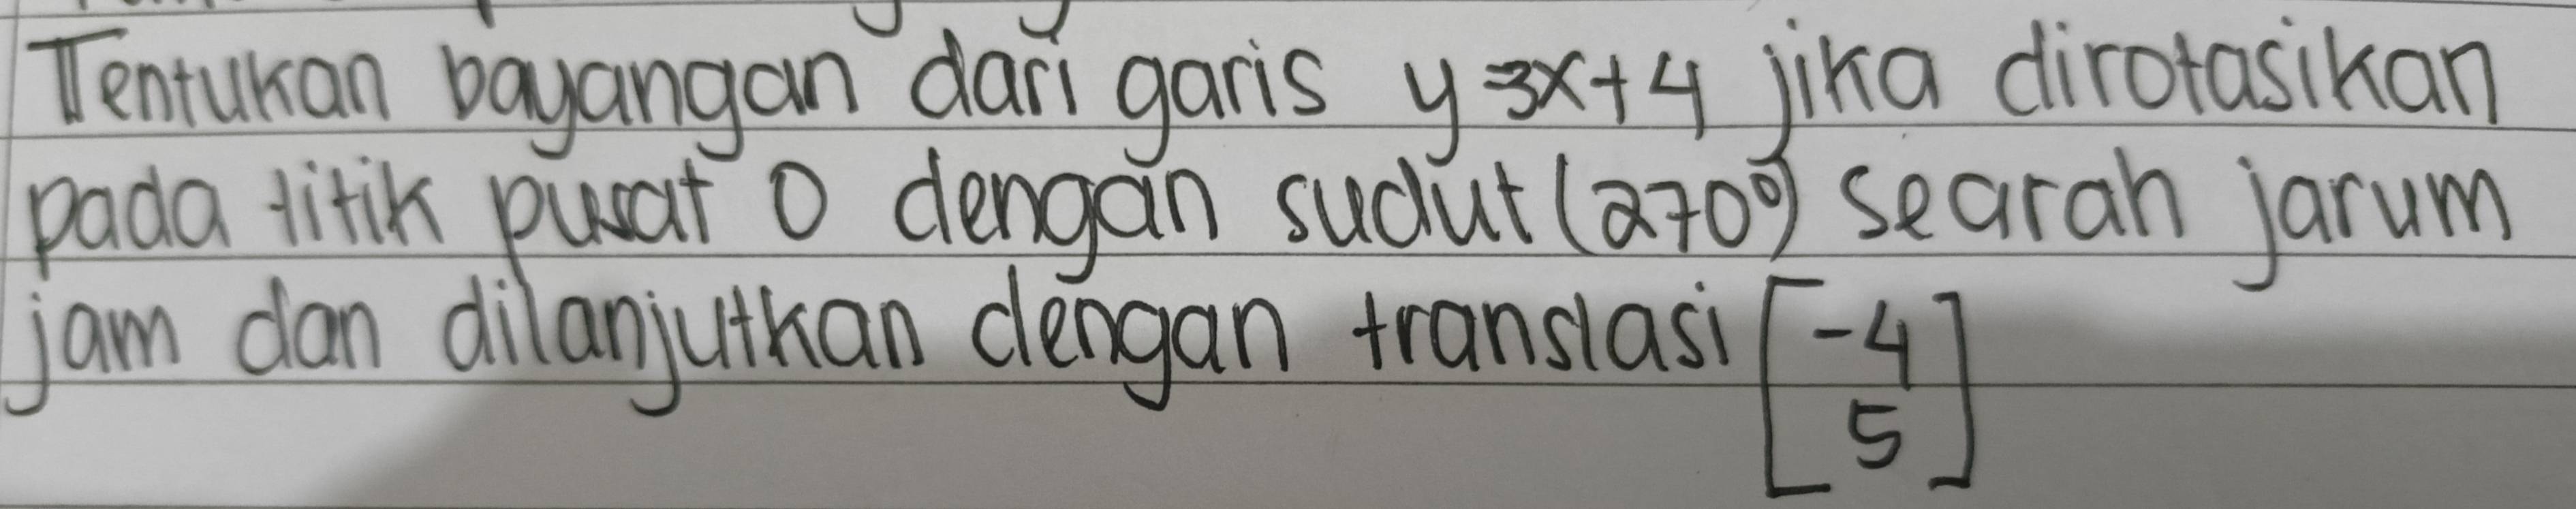 Tentukan bayangan dari garis y=3x+4 jika dirotasikan
pada titik pusat O dengan sudut (270°) searah jarum
jam dan dilanjutkan dengan translasi [-4
5]